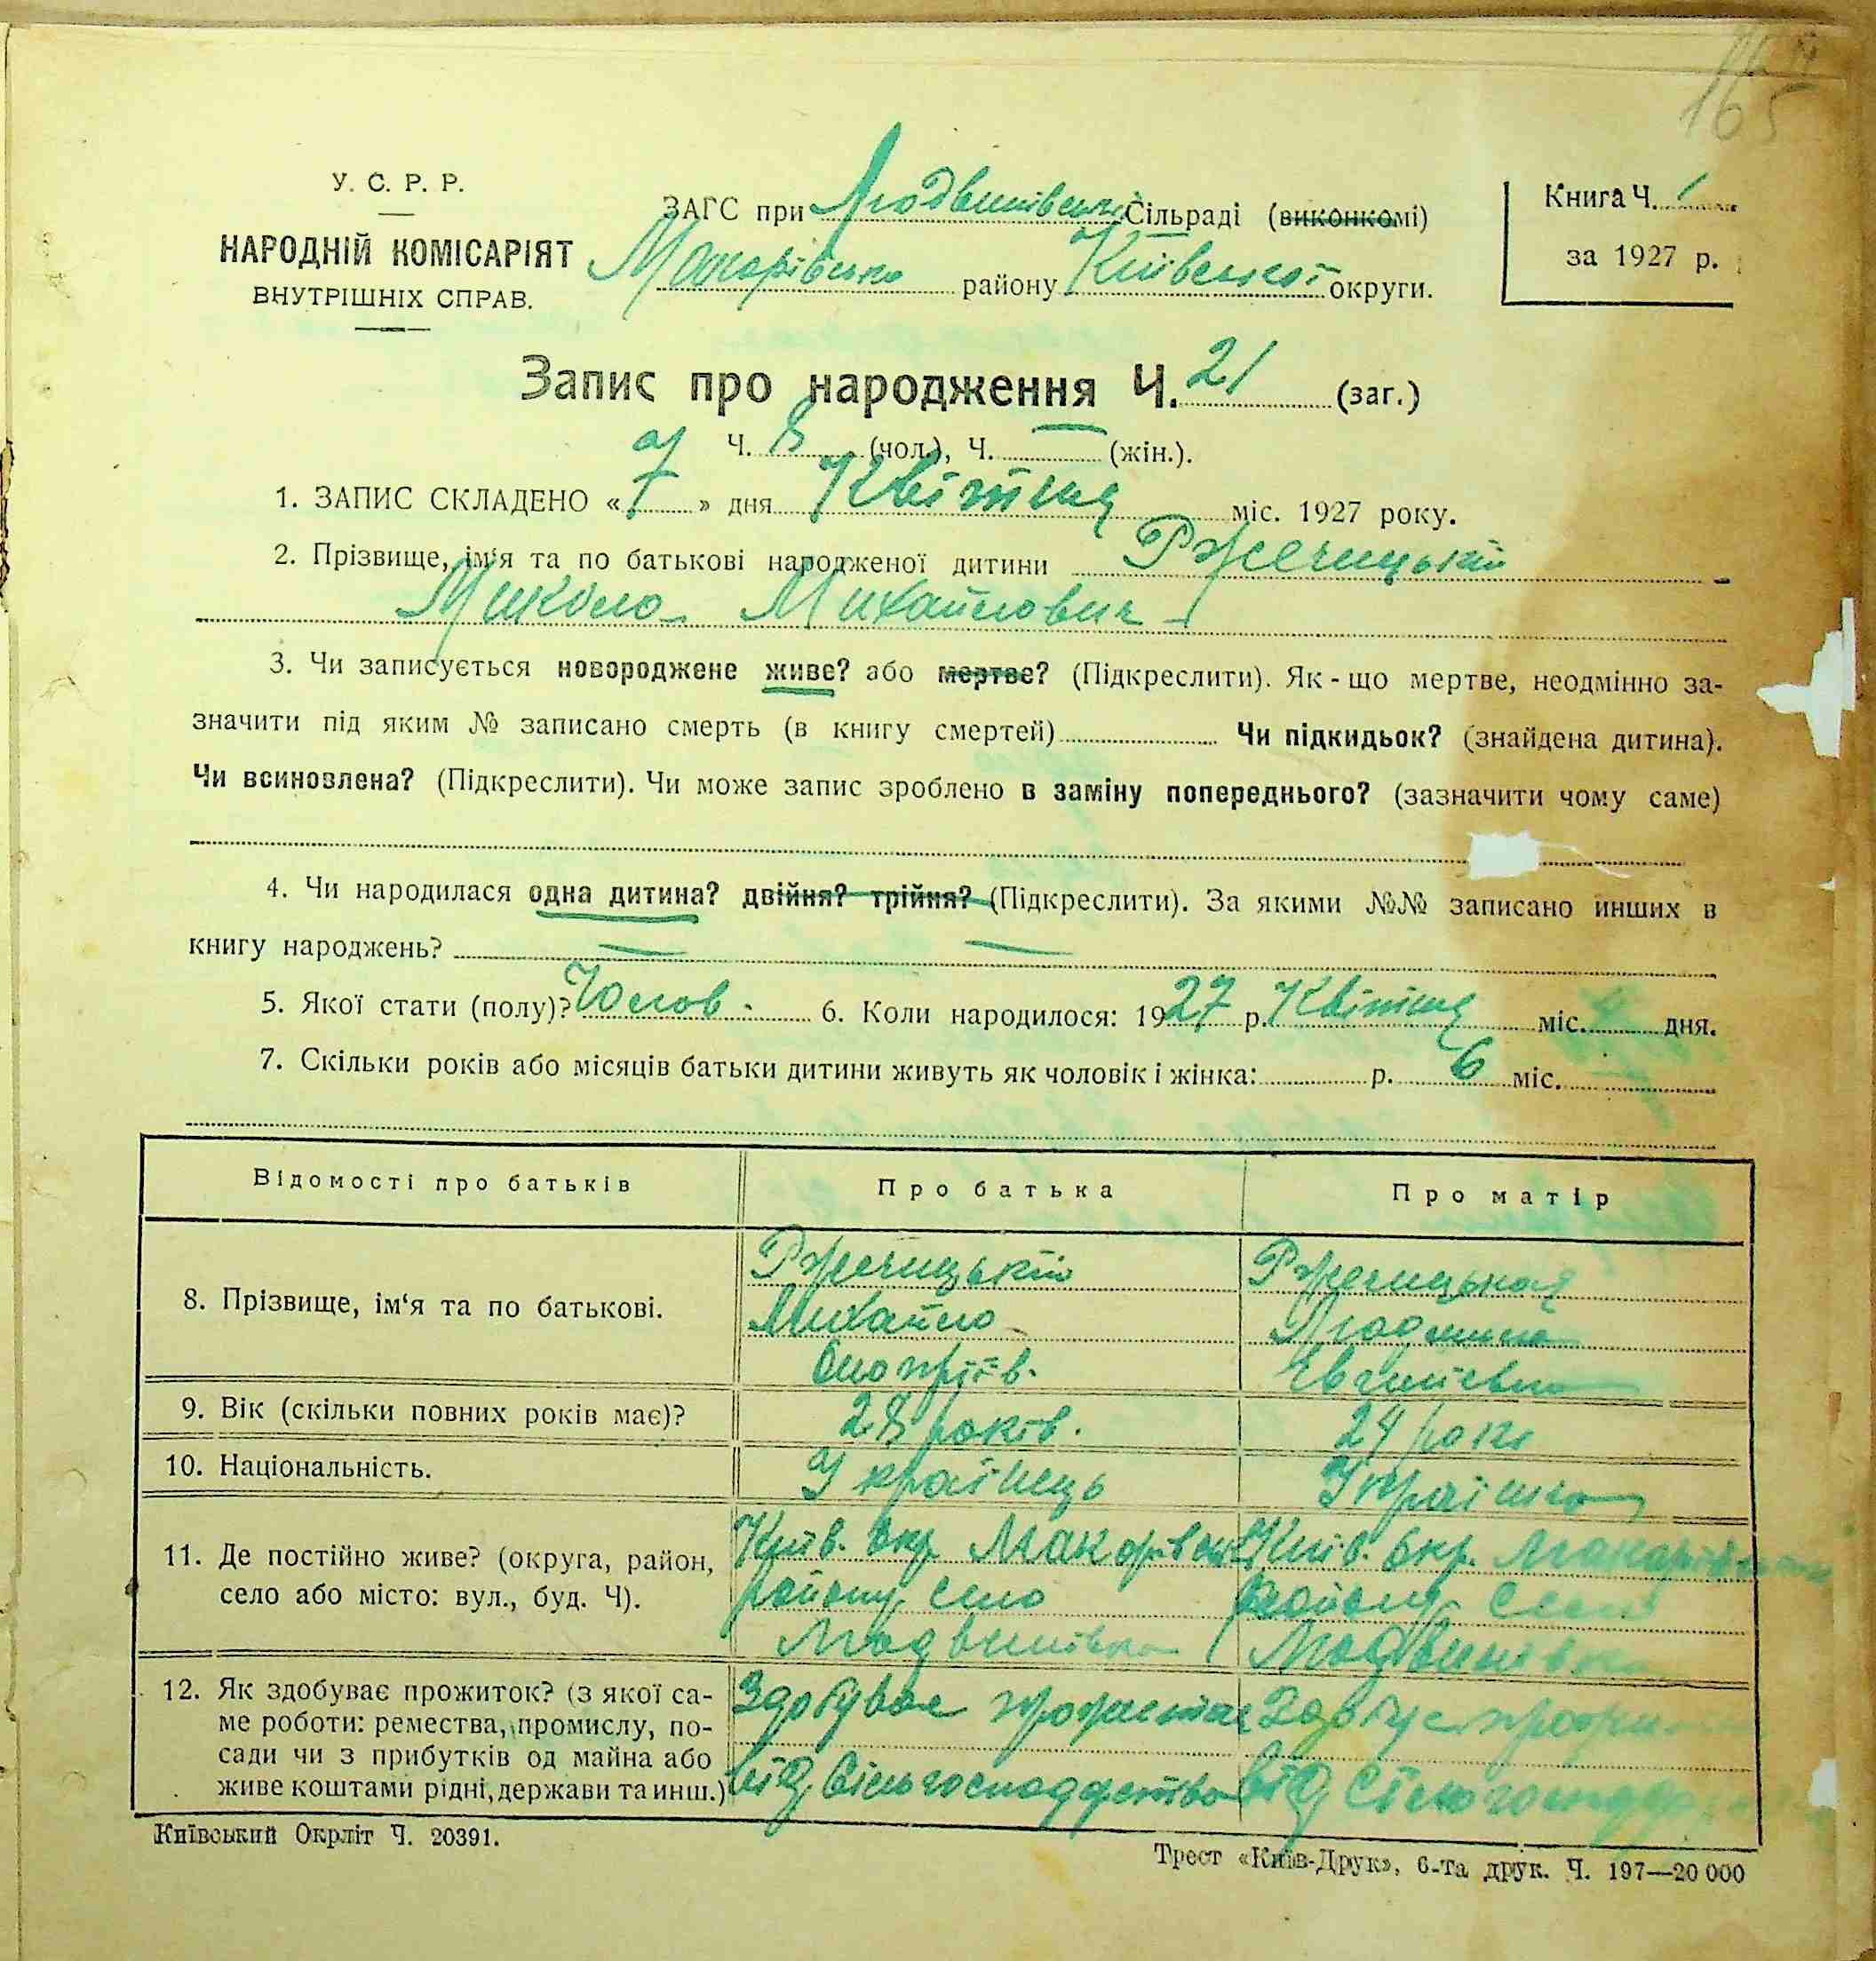 165
У. С. Р. Р.
НАРОДНІЙ КОМІСАРІЯТ
ВНУТРІШНІХ СПРАВ.
ЗАГС при Людвинівській Сільраді (виконкомі)
Макарівсько району Київської округи.
Книга Ч. 1
за 1927 р.
Запис про народження Ч. 21 (заг.)
Ч. 8 (чол.), Ч. — (жін.).
1. ЗАПИС СКЛАДЕНО « 7 » дня Квітня міс. 1927 року.
2. Прізвище, ім'я та по батькові народженої дитини Ржечицький
Микола Михайлович
3. Чи записується новороджене живе? або мертве? (Підкреслити). Як - що мертве, неодмінно за-
значити під яким № записано смерть (в книгу смертей) Чи підкидьок? (знайдена дитина).
Чи всиновлена? (Підкреслити). Чи може запис зроблено в заміну попереднього? (зазначити чому саме)
4. Чи народилася одна дитина? двійня? трійня? (Підкреслити). За якими №№ записано инших в
книгу народжень? — —
5. Якої стати (полу)? Чолов. 6. Коли народилося: 1927 р. Квітня міс. дня.
7. Скільки років або місяців батьки дитини живуть як чоловік і жінка: р. 6 міс.
Відомості про батьків Про батька Про матір
8. Прізвище, ім'я та по батькові.
Ржечицький
Михайло
Ржечицькая
Людмила
9. Вік (скільки повних років має)? 28 років. 24 роки
10. Національність. Українець Українка
11. Де постійно живе? (округа, район,
село або місто: вул., буд. Ч).
Київ. окр. Макарівськ
району, село
Людвинівка
Київ. окр. Макарівськ
району село
Людвинівка
12. Як здобуває прожиток? (з якої са-
ме роботи: ремества, промислу, по-
сади чи з прибутків од майна або
живе коштами рідні, держави та инш.)
Здобував
від Сільгосподарства
від
Київський Окрліт Ч. 20391.
Трест «Київ-Друк», 6-та друк. Ч. 197—20 000